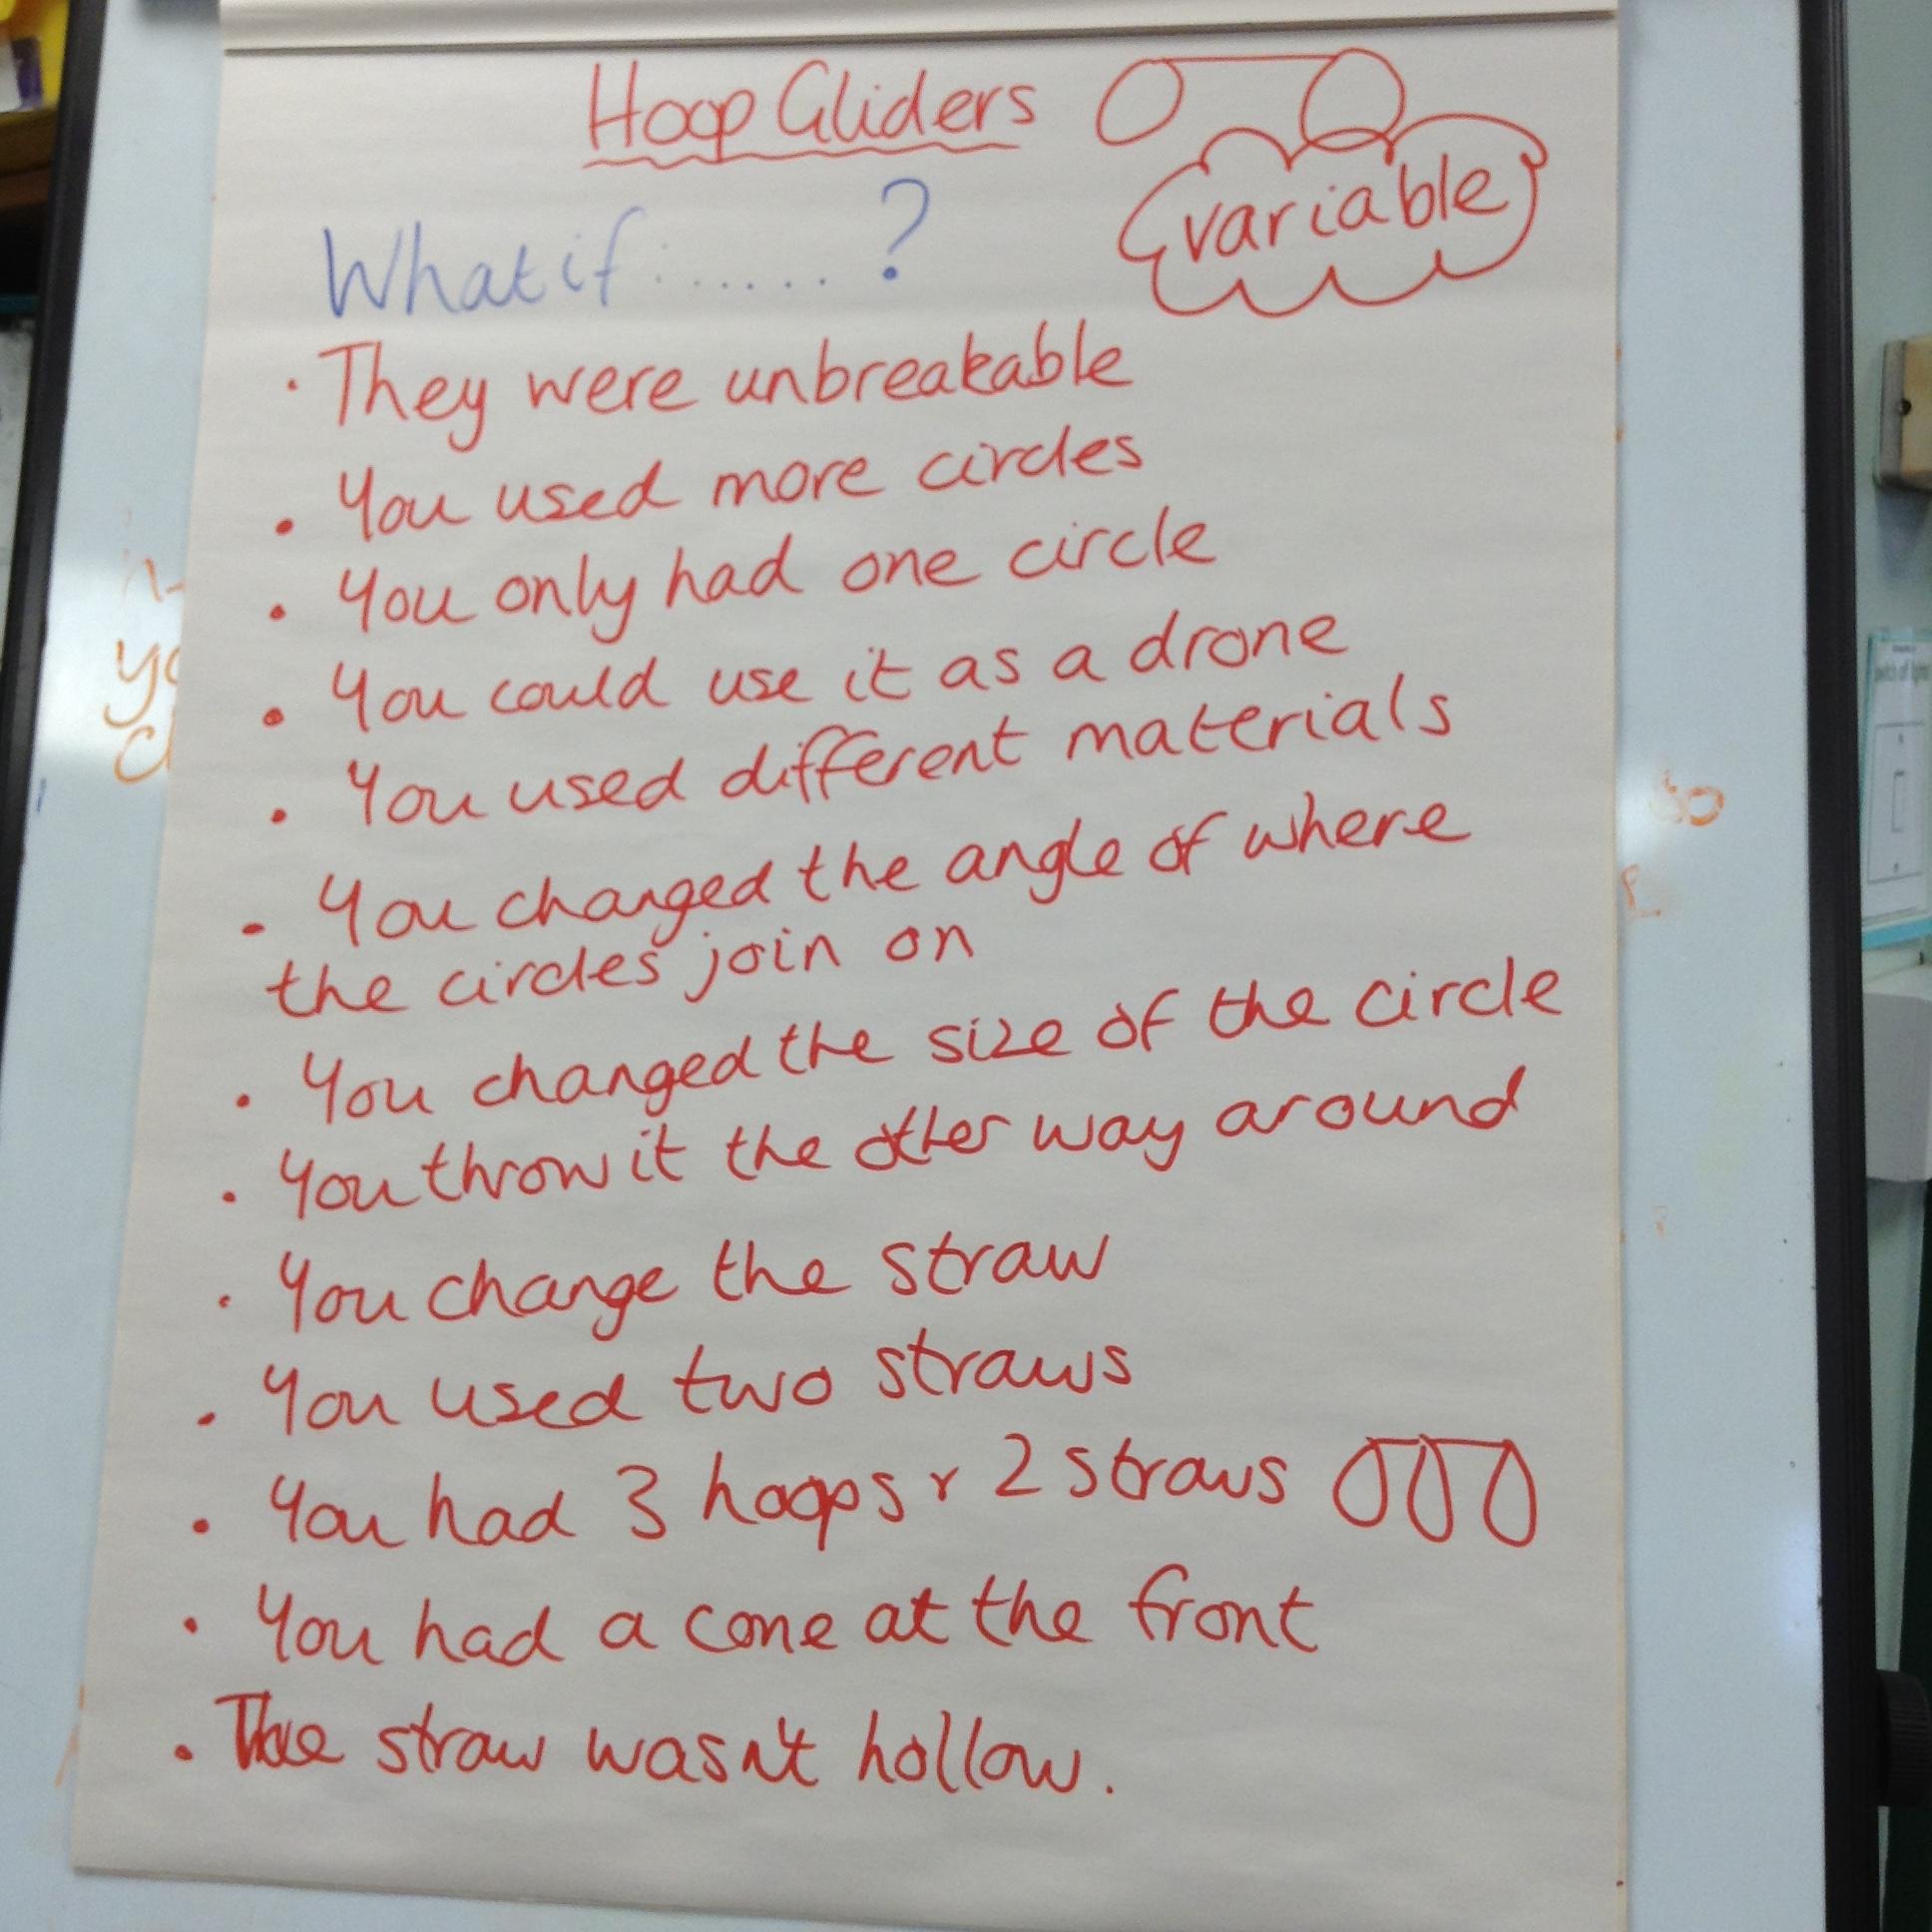 Hoop Gliders
variable
What if.......?
• They were unbreakable
• You used more circles
• You only had one circle
• You could use it as a drone
• You used different materials
• You changed the angle of where
the circles join on
• You changed the size of the circle
• You throw it the other way around
• You change the straw
• You used two straws
• You had 3 hoops + 2 straws
• You had a cone at the front
• The straw wasn't hollow.